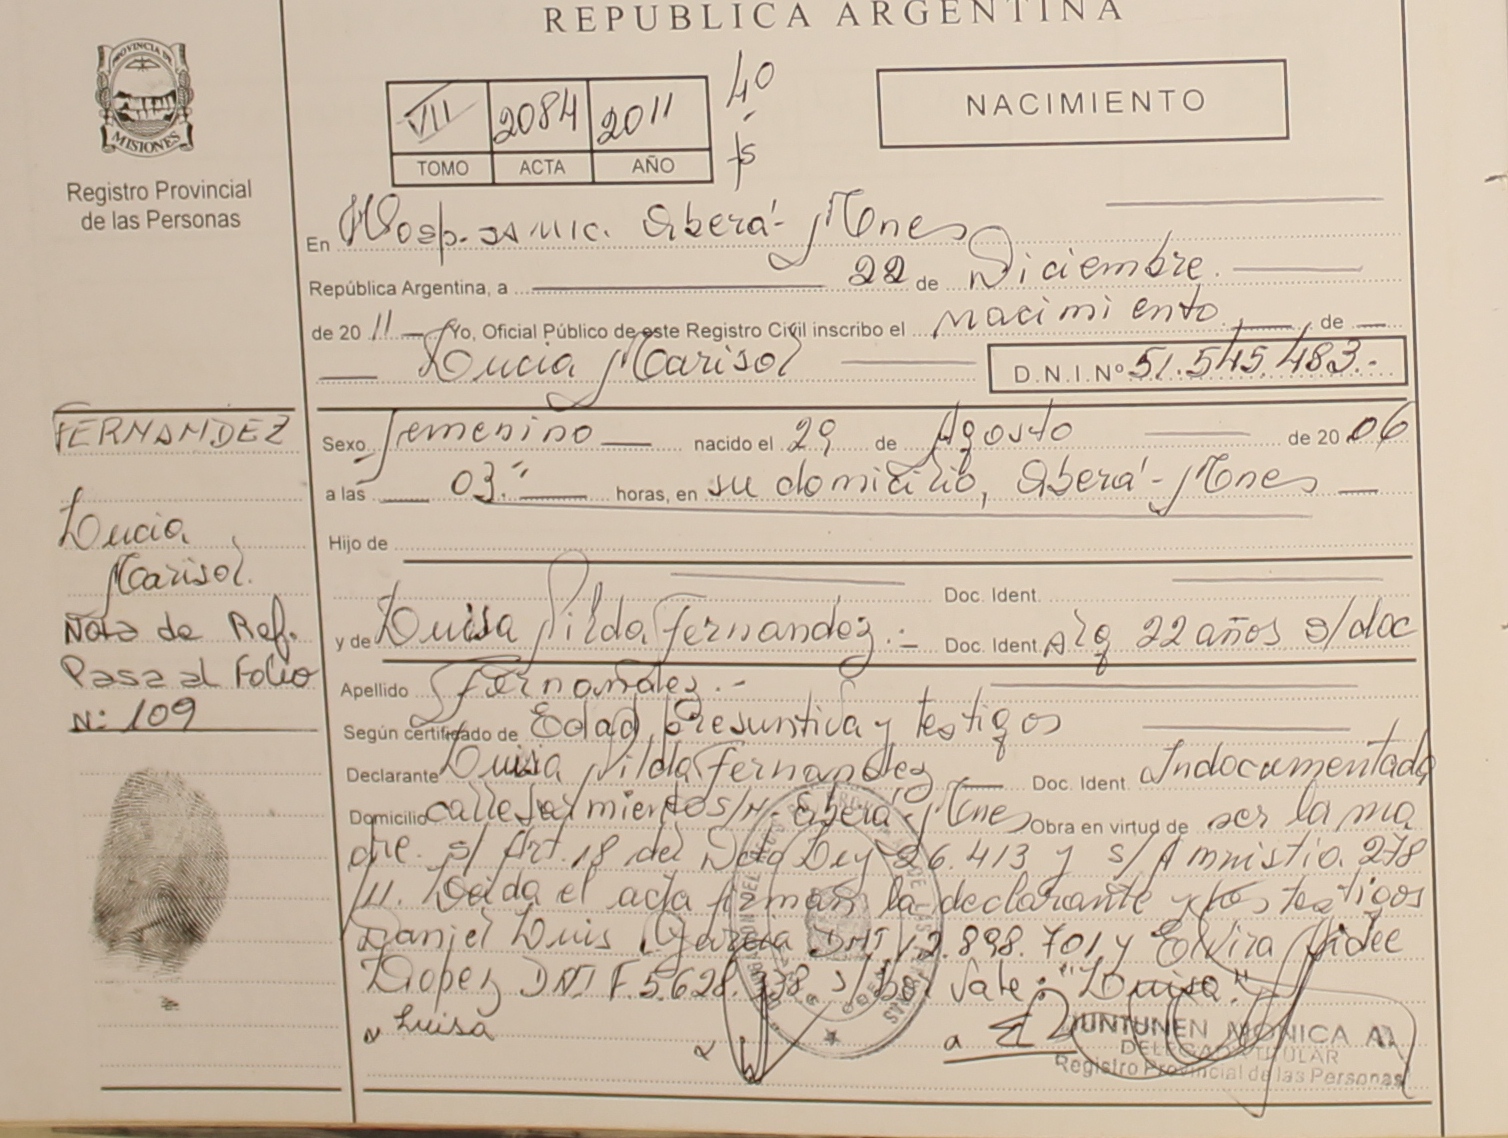 REPUBLICA ARGENTINA
PROVINCIA DE MISIONES
Registro Provincial
de las Personas
VII 2084 2011
TOMO ACTA AÑO
40
NACIMIENTO
En Hosp. SAMIC. Oberá - Mnes
República Argentina, a 22 de Diciembre.
de 20 11 Yo, Oficial Público de este Registro Civil inscribo el nacimiento, de
Lucia Marisol D.N.I.Nº 51.545.483.-
FERNANDEZ
Sexo femenino nacido el 29 de Agosto de 20 06
a las 03.- horas, en su domicilio, Oberá - Mnes
Lucia
Marisol.
Hijo de
Doc. Ident.
Nota de Ref.
Pasa al Folio
Nº 109
y de Luisa Nilda Fernandez.- Doc. Ident. Arg 22 años s/doc
Apellido Fernandez.-
Según certificado de Edad Presuntiva y testigos
Declarante Luisa Nilda Fernandez Doc. Ident. Indocumentada
Domicilio calle Sarmiento s/n- Oberá - Mnes Obra en virtud de ser la ma
dre. s/ Art. 18 del Ley 26.413 y s/Amnistia. 278
/11. Leída el acta firman la declarante y los testigos
Daniel Luis Garcia DNI 12.898.701 y Elvira Aidee
Lopez DNI F.5.628.338 Vale: "Luisa"
Luisa
JUNTUNEN MONICA A.
DELEGADA TITULAR
Registro Provincial de las Personas